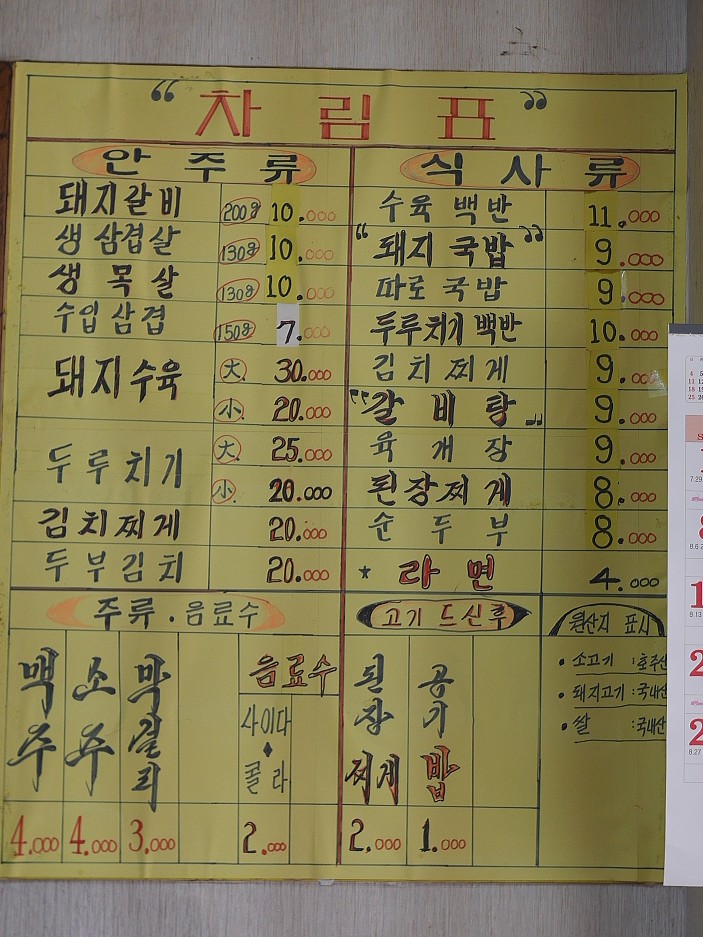 “차림표”
안주류
돼지갈비 200g 10.000
생삼겹살 130g 10.000
생목살 130g 10.000
수입삼겹 150g 7.000
돼지수육 大 30.000
小 20.000
두루치기 大 25.000
小 20.000
김치찌게 20.000
두부김치 20.000
식사류
수육백반 11.000
“돼지국밥” 9.000
따로국밥 9.000
두루치기백반 10.000
김치찌게 9.000
"갈비탕" 9.000
육개장 9.000
된장찌게 8.000
순두부 8.000
★ 라면 4.000
주류.음료수
맥주 4.000
소주 4.000
막걸리 3.000
음료수
사이다
♦
콜라
2.000
고기 드신후
된장찌게 2.000
공기밥 1.000
원산지 표시
• 소고기 : 호주산
• 돼지고기 : 국내산
• 쌀 : 국내산
7.29
8.6
8.13
8.27